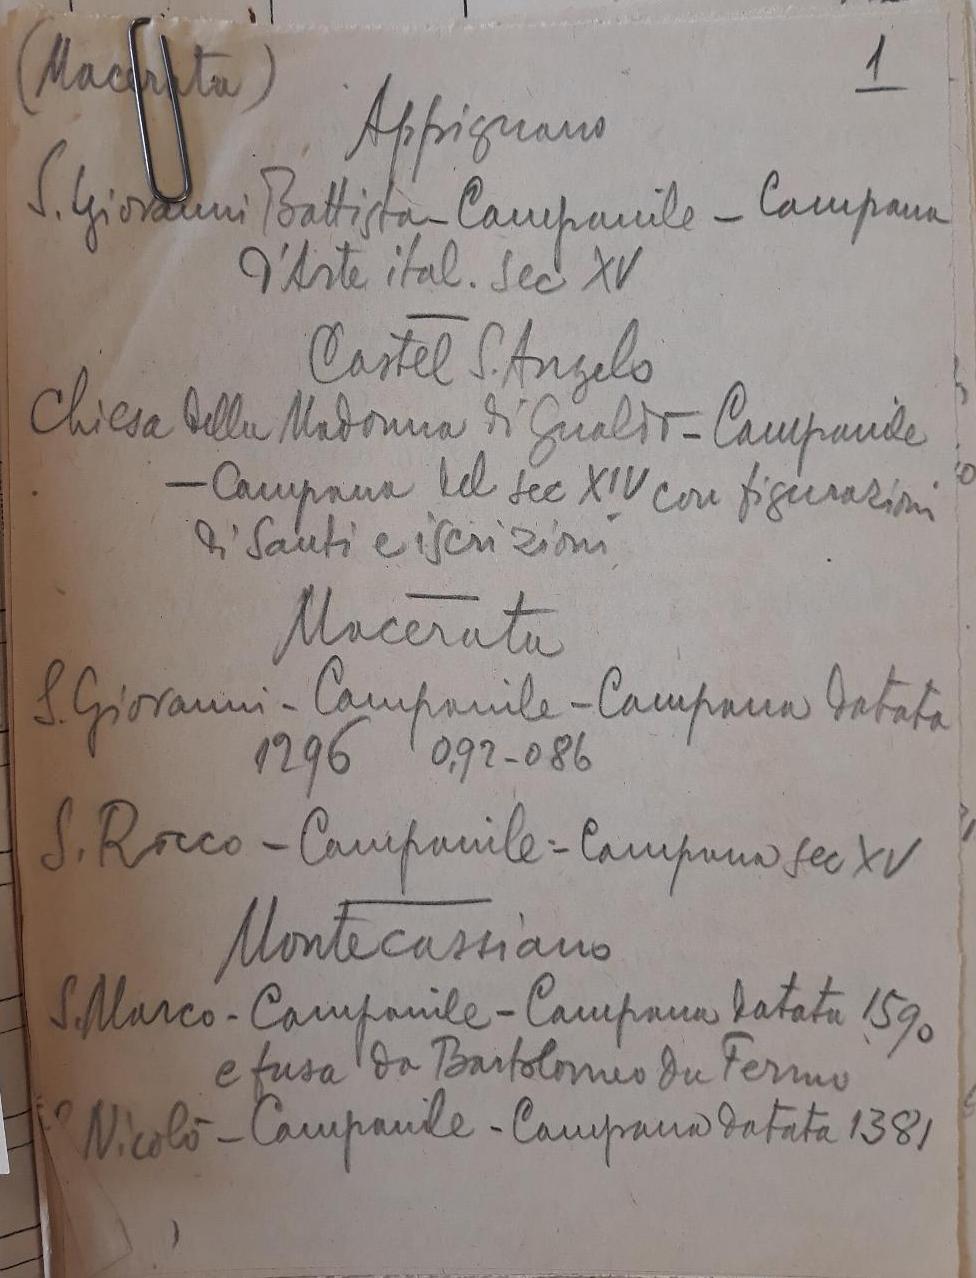 (Macerata) 1
Appignano
S. Giovanni Battista - Campanile - Campana
d'Arte ital. sec XV
Castel S. Angelo
Chiesa della Madonna di Gualdo - Campanile
- Campana del sec XIV con figurazioni
di Santi e iscrizioni
Macerata
S. Giovanni - Campanile - Campana datata
1296 0,92-086
S. Rocco - Campanile = Campana sec XV
Montecassiano
S. Marco - Campanile - Campana datata 1590
e fusa da Bartolomeo da Fermo
S. Nicolò - Campanile - Campana datata 1381